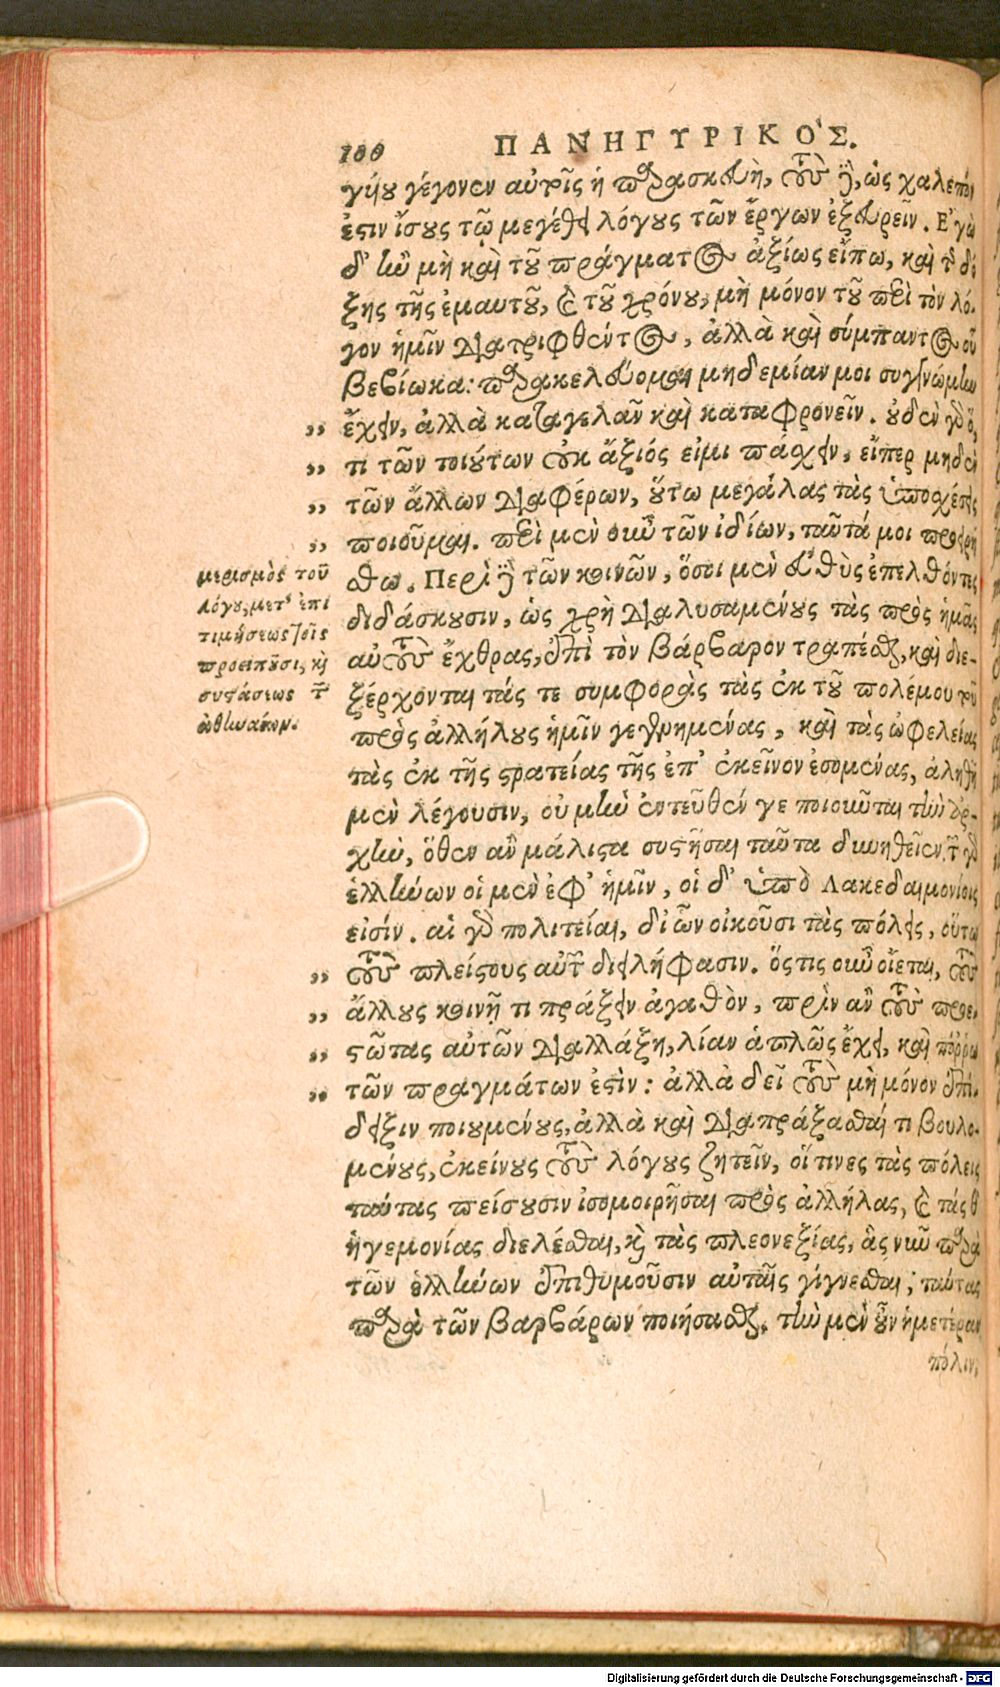 100 ΠΑΝΗΓΥΡΙΚΟΣ.
γύου γέγονεν αὐτοῖς ἡ παρασκευὴ, τοὺς δὲ, ὡς χαλεπόν
ἐστιν ἴσους τῷ μεγέθει λόγους τῶν ἔργων ἐξευρεῖν. Ἐγὼ
δ' ἢν μὴ καὶ τοῦ πράγματος ἀξίως εἴπω, καὶ τῆς δό-
ξης τῆς ἐμαυτοῦ, καὶ τοῦ χρόνου, μὴ μόνον τοῦ περὶ τὸν λό-
γον ἡμῖν διατριφθέντος, ἀλλὰ καὶ σύμπαντος οὗ
βεβίωκα: παρακελεύομαι μηδεμίαν μοι συγγνώμην
„ ἔχειν, ἀλλὰ καταγελᾶν καὶ καταφρονεῖν. οὐδὲν γὰρ ὅ,
„ τι τῶν τοιούτων οὐκ ἄξιός εἰμι πάσχειν, εἴπερ μηδὲν
„ τῶν ἄλλων διαφέρων, οὕτω μεγάλας τὰς ὑποσχέσεις
„ ποιοῦμαι. περὶ μὲν οὖν τῶν ἰδίων, ταῦτά μοι προειρή
σθω. Περὶ δὲ τῶν κοινῶν, ὅσοι μὲν εὐθὺς ἐπελθόντες
διδάσκουσιν, ὡς χρὴ διαλυσαμένους τὰς πρὸς ἡμᾶς
αὐτοὺς ἔχθρας, ἐπὶ τὸν βάρβαρον τραπέσθαι, καὶ διε-
ξέρχονται τάς τε συμφορὰς τὰς ἐκ τοῦ πολέμου τοῦ
πρὸς ἀλλήλους ἡμῖν γεγενημένας, καὶ τὰς ὠφελείας
τὰς ἐκ τῆς στρατείας τῆς ἐπ' ἐκεῖνον ἐσομένας, ἀληθῆ
μὲν λέγουσιν, οὐ μὴν ἐντεῦθέν γε ποιοῦνται τὴν ἀρ-
χὴν, ὅθεν ἂν μάλιστα συστῆσαι ταῦτα δυνηθεῖεν, τῶν γὰρ
ἑλλήνων οἱ μὲν ἐφ' ἡμῖν, οἱ δ' ὑπὸ Λακεδαιμονίοις
εἰσίν. αἱ γὰρ πολιτεῖαι, δι' ὧν οἰκοῦσι τὰς πόλεις, οὕτω
„ τοὺς πλείστους αὐτῶν διειλήφασιν. ὅστις οὖν οἴεται, τοὺς
„ ἄλλους κοινῇ τι πράξειν ἀγαθὸν, πρὶν ἂν τοὺς προε-
„ στῶτας αὐτῶν διαλλάξῃ, λίαν ἁπλῶς ἔχει, καὶ πόῤῥω
„ τῶν πραγμάτων ἐστίν: ἀλλὰ δεῖ τοὺς μὴ μόνον ἐπί-
δειξιν ποιουμένους, ἀλλὰ καὶ διαπράξασθαί τι βουλο-
μένους, ἐκείνους τοὺς λόγους ζητεῖν, οἵτινες τὰς πόλεις
ταύτας πείσουσιν ἰσομοιρῆσαι πρὸς ἀλλήλας, καὶ τάς θ'
ἡγεμονίας διελέσθαι, καὶ τὰς πλεονεξίας, ἃς νῦν παρὰ
τῶν ἑλλήνων ἐπιθυμοῦσιν αὐταῖς γίγνεσθαι; ταύτας
παρὰ τῶν βαρβάρων ποιήσασθαι. τὴν μὲν οὖν ἡμετέραν
πόλιν,
μερισμὸς τοῦ
λόγου, μετ' ἐπι
τιμήσεως τοῖς
προειποῦσι, καὶ
συστάσεως τῶν